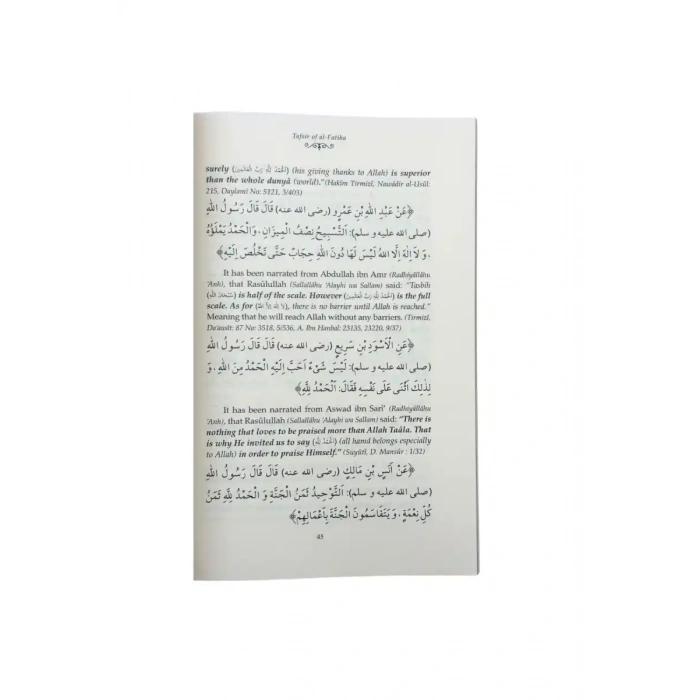 Tafsir of al-Fatiha
surely (اَلْحَمْدُ لِلّٰهِ رَبِّ الْعَالَمِينَ) (his giving thanks to Allah) is superior
than the whole dunyâ (world)." (Hakîm Tirmizî, Nawâdir al-Usûl:
215, Daylamî No: 5121, 3/403)
﴿عَنْ عَبْدِ اللّٰهِ بْنِ عَمْرٍو (رضى الله عنه) قَالَ قَالَ رَسُولُ اللّٰهِ
(صلى الله عليه و سلم): اَلتَّسْبِيحُ نِصْفُ الْمِيزَانِ ، وَالْحَمْدُ يَمْلَؤُهُ
، وَ لَا اِلٰهَ اِلَّا اللّٰهُ لَيْسَ لَهَا دُونَ اللّٰهِ حِجَابٌ حَتَّى تَخْلُصَ اِلَيْهِ﴾
It has been narrated from Abdullah ibn Amr (Radhiyallâhu
'Anh), that Rasûlullah (Sallallâhu 'Alayhi wa Sallam) said: "Tasbih
(سُبْحَانَ اللّٰهِ) is half of the scale. However (اَلْحَمْدُ لِلّٰهِ رَبِّ الْعَالَمِينَ) is the full
scale. As for (لَا اِلٰهَ اِلَّا اللّٰهُ), there is no barrier until Allah is reached."
Meaning that he will reach Allah without any barriers. (Tirmizî,
Da'auât: 87 No: 3518, 5/536, A. Ibn Hanbal: 23135, 23220, 9/37)
﴿عَنِ الْاَسْوَدِ بْنِ سَرِيعٍ (رضى الله عنه) قَالَ قَالَ رَسُولُ اللّٰهِ
(صلى الله عليه و سلم): لَيْسَ شَيْءٌ اَحَبَّ اِلَيْهِ الْحَمْدُ مِنَ اللّٰهِ ، وَ
لِذٰلِكَ اَثْنٰى عَلٰى نَفْسِهِ فَقَالَ: اَلْحَمْدُ لِلّٰهِ﴾
It has been narrated from Aswad ibn Sarî' (Radhiyallâhu
'Anh), that Rasûlullah (Sallallâhu 'Alayhi wa Sallam) said: "There is
nothing that loves to be praised more than Allah Taâla. That
is why He invited us to say (اَلْحَمْدُ لِلّٰهِ) (all hamd belongs especially
to Allah) in order to praise Himself." (Suyûtî, D. Mansûr : 1/32)
﴿عَنْ اَنَسِ بْنِ مَالِكٍ (رضى الله عنه) قَالَ قَالَ رَسُولُ اللّٰهِ
(صلى الله عليه و سلم): اَلتَّوْحِيدُ ثَمَنُ الْجَنَّةِ وَ الْحَمْدُ لِلّٰهِ ثَمَنُ
كُلِّ نِعْمَةٍ ، وَ يَتَقَاسَمُونَ الْجَنَّةَ بِاَعْمَالِهِمْ﴾
45